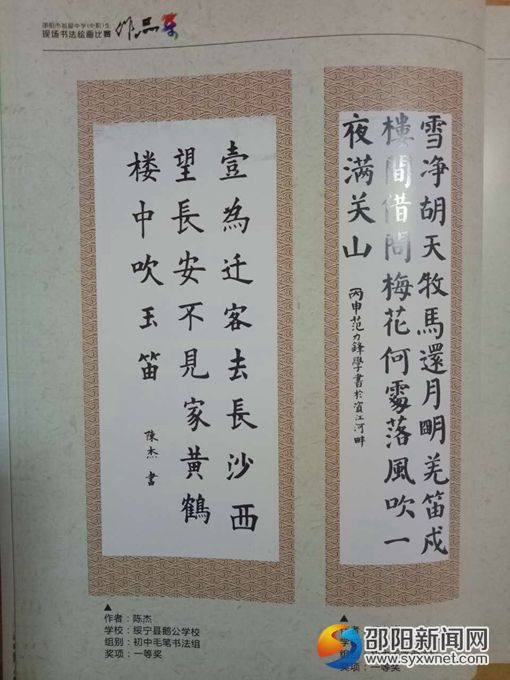 邵阳市首届中学(中职)生
现场书法绘画比赛
作品集
雪净胡天牧馬還月明羌笛戍
樓間借問梅花何處落風吹一
夜满关山
丙申范力鋒學書於賓江河畔
壹為迁客去長沙西
望長安不見家黄鶴
楼中吹玉笛
陳杰書
作者：陈杰
学校：绥宁县鹅公学校
组别：初中毛笔书法组
奖项：一等奖
奖项：一等奖
邵阳新闻网
www.syxwnet.cn